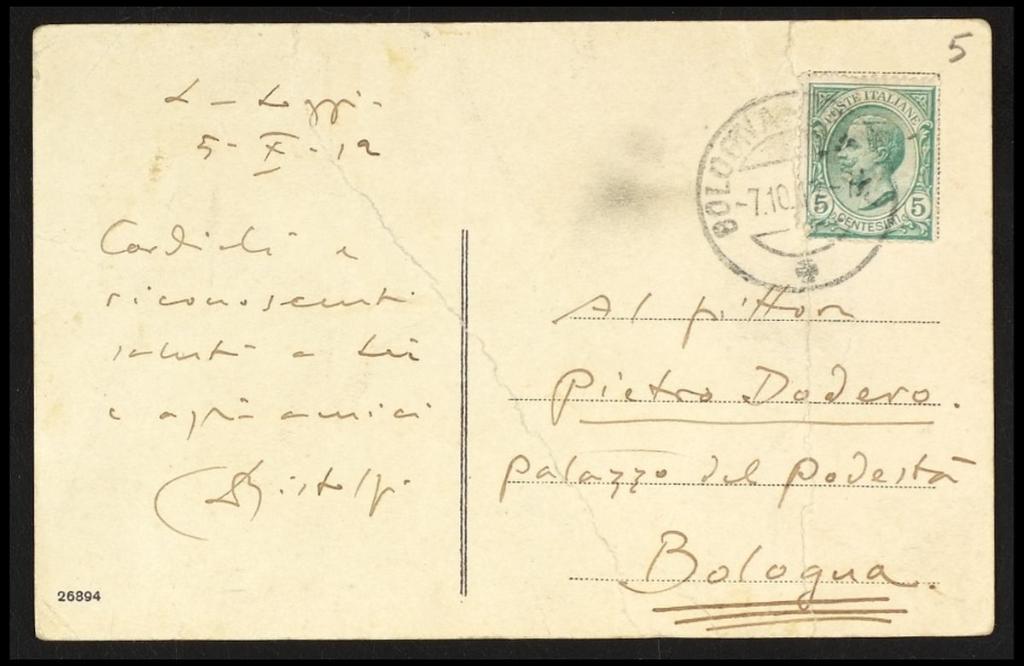 5
La Loggia
5-X-12
BOLOGNA
-7.10.12-
POSTE ITALIANE
5 5
CENTESIMI
Cordiali e
riconoscenti
saluti a Lei
e agli amici
Bistolfi
Al pittore
Pietro Dodero.
Palazzo del Podestà
Bologna.
26894